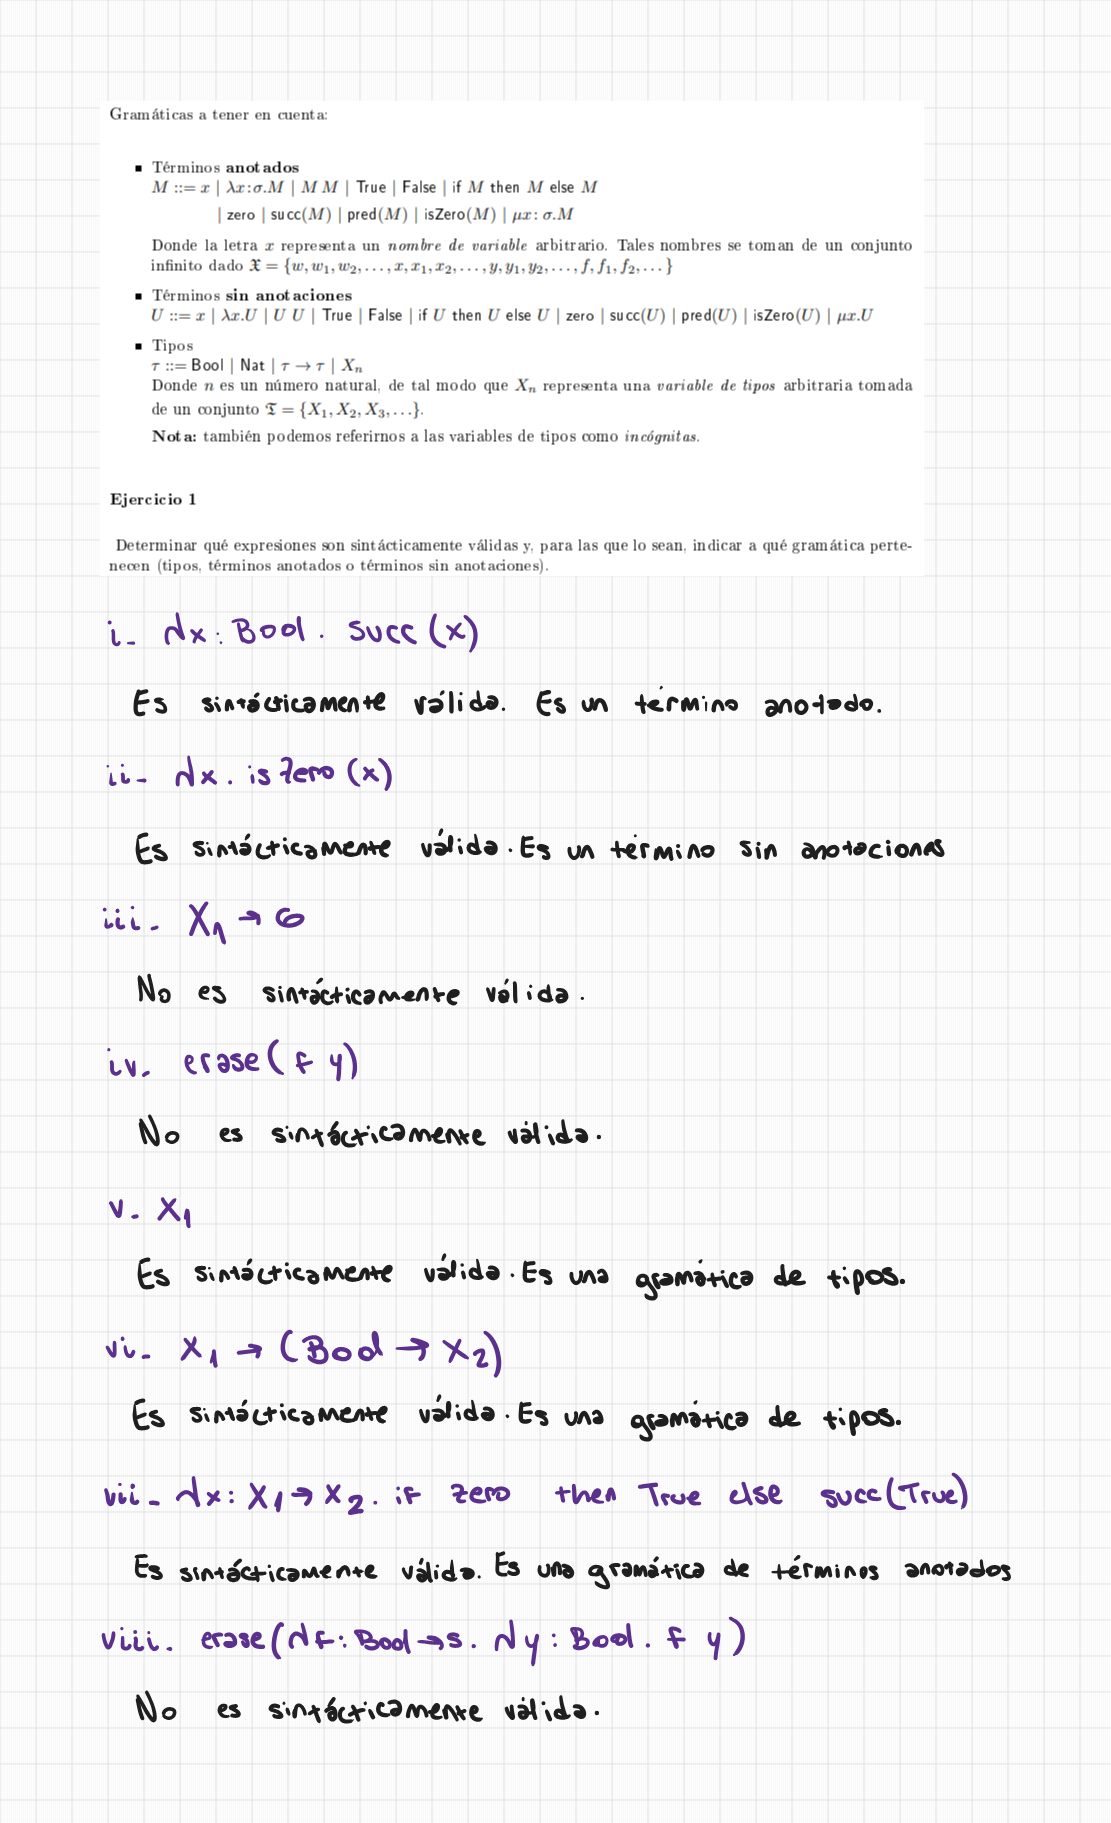 Gramáticas a tener en cuenta:
▪ Términos anotados
M ::= x | λx:σ.M | M M | True | False | if M then M else M
| zero | succ(M) | pred(M) | isZero(M) | μx: σ.M
Donde la letra x representa un nombre de variable arbitrario. Tales nombres se toman de un conjunto
infinito dado 𝔛 = {w, w₁, w₂, ..., x, x₁, x₂, ..., y, y₁, y₂, ..., f, f₁, f₂, ...}
▪ Términos sin anotaciones
U ::= x | λx.U | U U | True | False | if U then U else U | zero | succ(U) | pred(U) | isZero(U) | μx.U
▪ Tipos
τ ::= Bool | Nat | τ → τ | Xₙ
Donde n es un número natural, de tal modo que Xₙ representa una variable de tipos arbitraria tomada
de un conjunto 𝔗 = {X₁, X₂, X₃, ...}.
Nota: también podemos referirnos a las variables de tipos como incógnitas.
Ejercicio 1
Determinar qué expresiones son sintácticamente válidas y, para las que lo sean, indicar a qué gramática perte-
necen (tipos, términos anotados o términos sin anotaciones).
i- λx: Bool. succ(x)
Es sintácticamente válida. Es un término anotado.
ii- λx. isZero(x)
Es sintácticamente válida. Es un término sin anotaciones
iii- X₁ → σ
No es sintácticamente válida.
iv. erase(f y)
No es sintácticamente válida.
v. X₁
Es sintácticamente válida. Es una gramática de tipos.
vi- X₁ → (Bool → X₂)
Es sintácticamente válida. Es una gramática de tipos.
vii- λx: X₁ → X₂. if zero then True else succ(True)
Es sintácticamente válida. Es una gramática de términos anotados
viii. erase(λf: Bool → s. λy: Bool. f y)
No es sintácticamente válida.